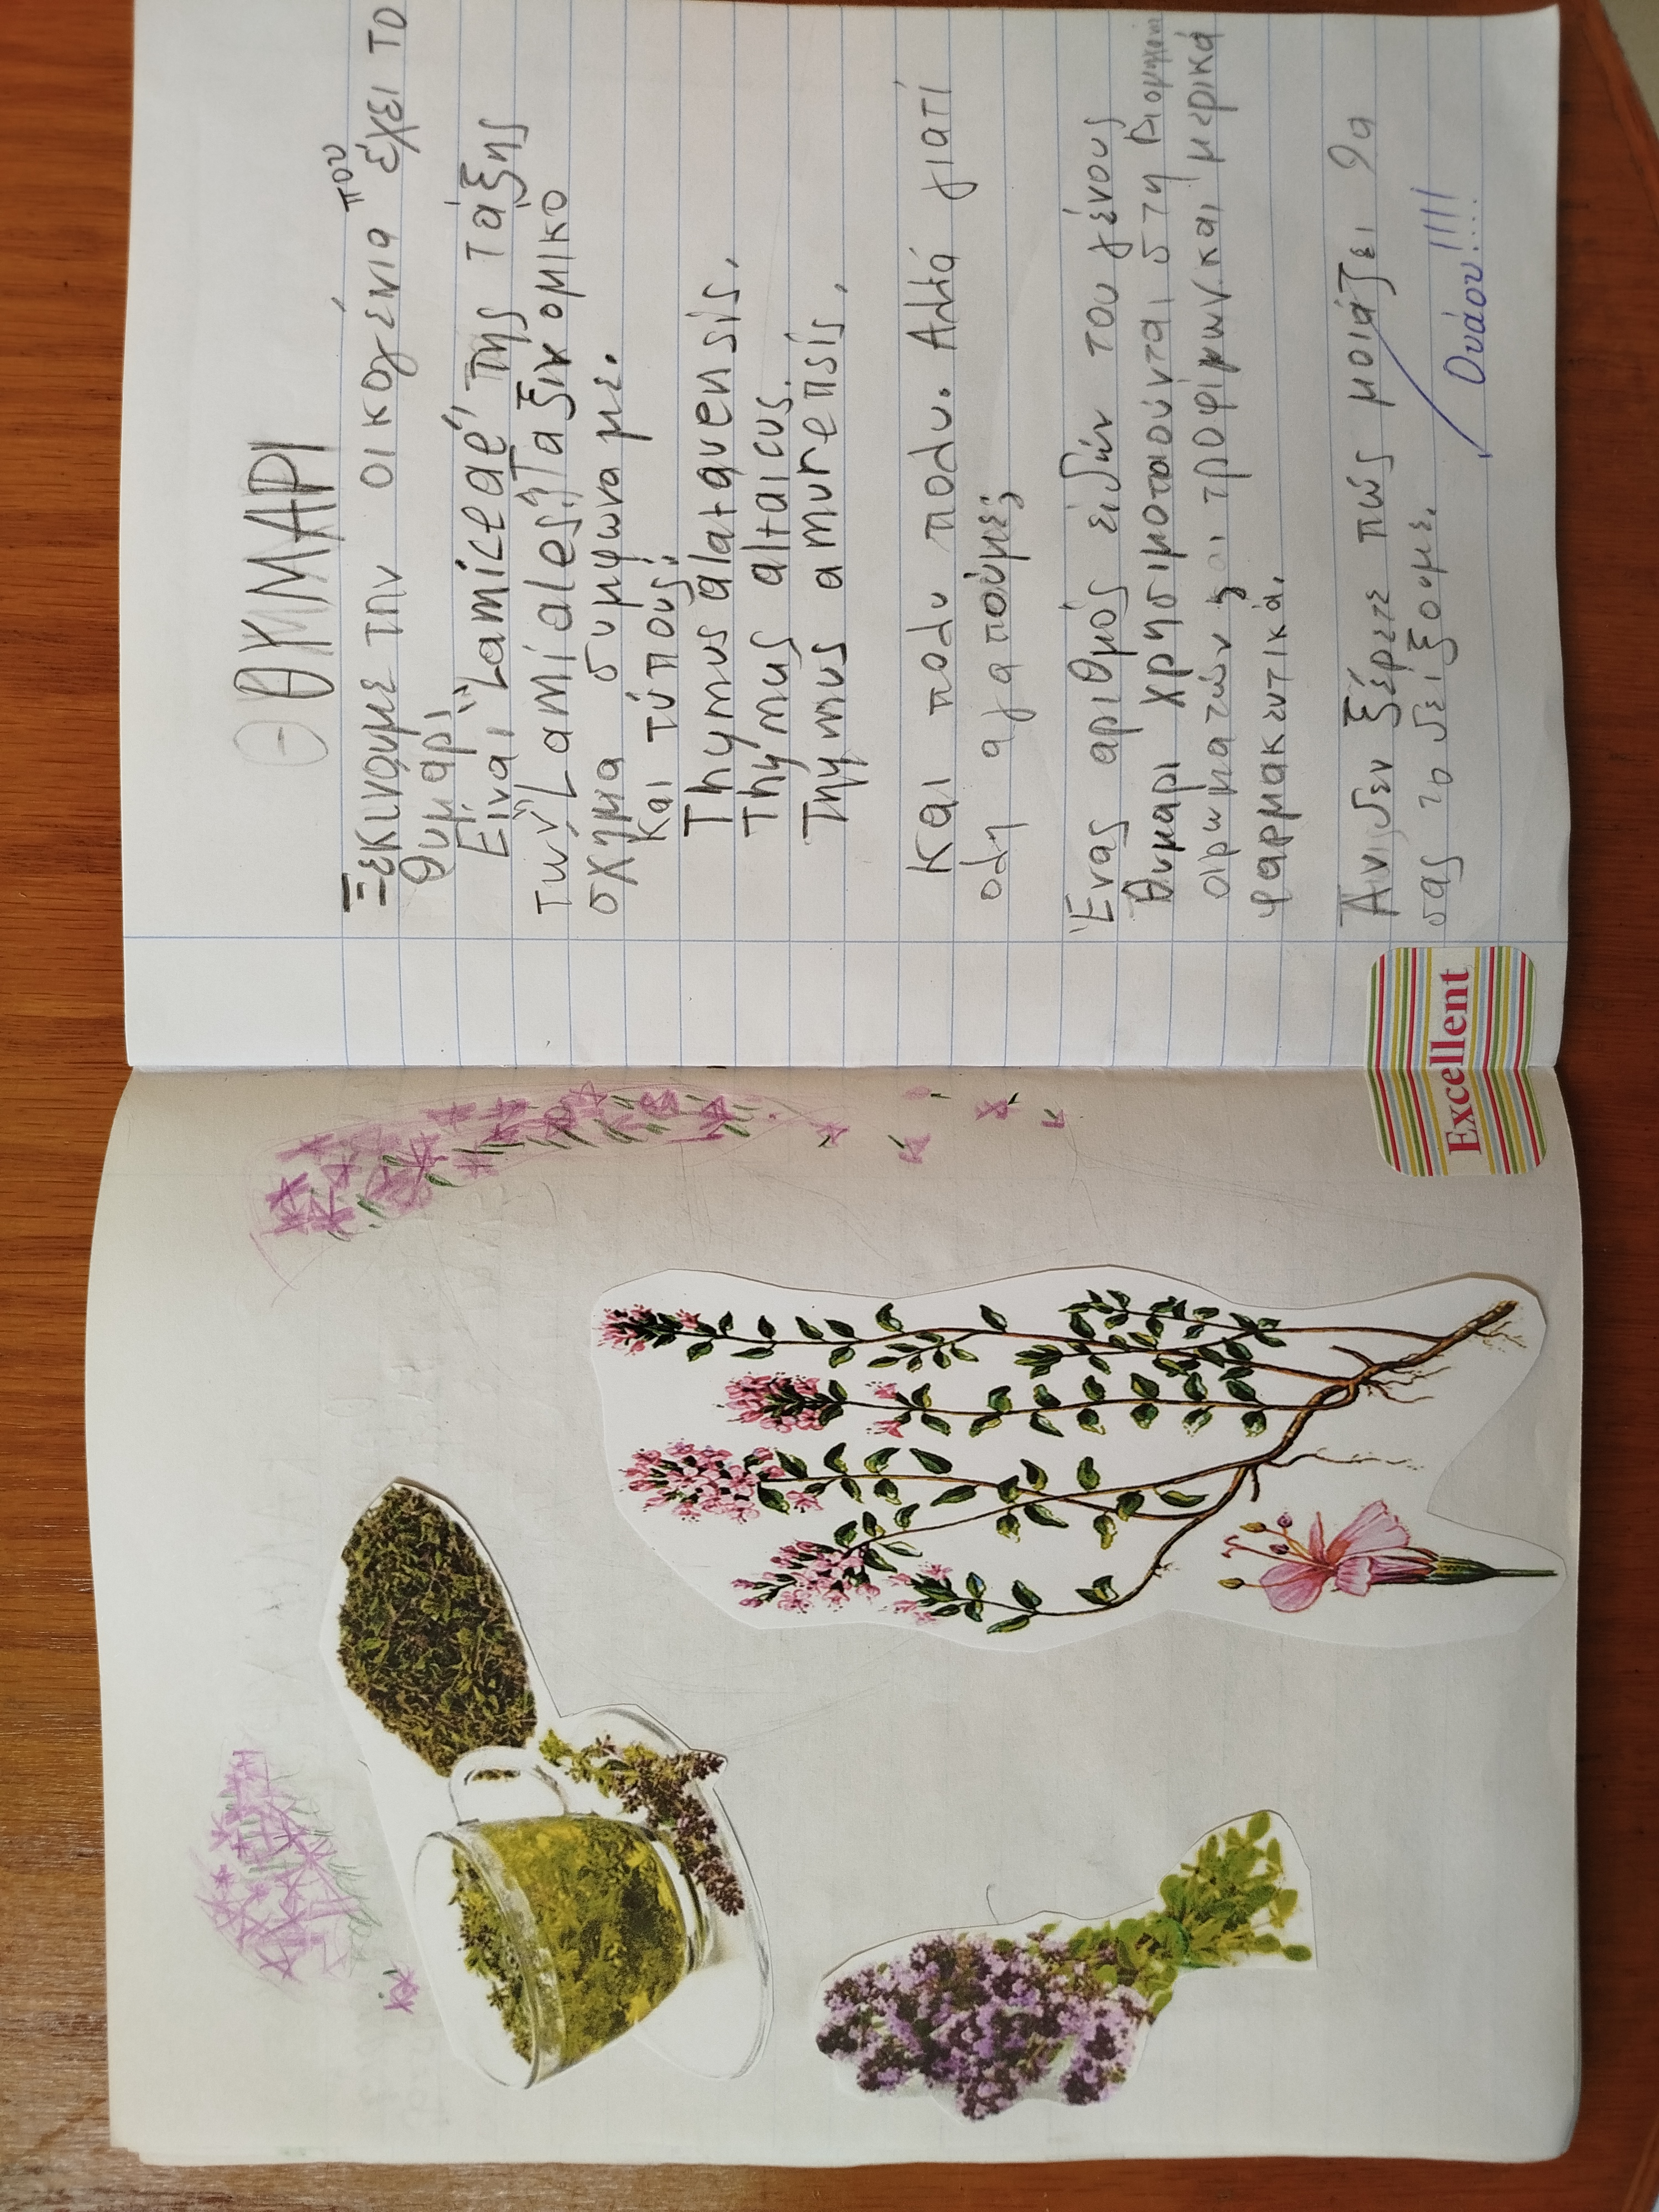 ΘΥΜΑΡΙ
Ξεκινουμε την οικογένια που έχει το
θυμάρι
Είναι "Lamiceaé" της τάξης
των "Lamiales". Ταξινομικο
σχημα συμφωνα με.
Και τύπους:
Thymus alatauensis,
Thymus altaicus.
Thymus amurensis,
Και πολυ πολυ. Αλλά γιατί
ολη αγαπούμε;
Ένας αριθμός ειδών του γένους
θυμαρι χρησιμοποιούνται στη βιομηχανία
αρωματών και τροφίμων. και μερικά
φαρμακευτικά.
Αν δεν ξέρετε πώς μοιάζει θα
σας το δείξουμε.
Ουάου!!!!
Excellent